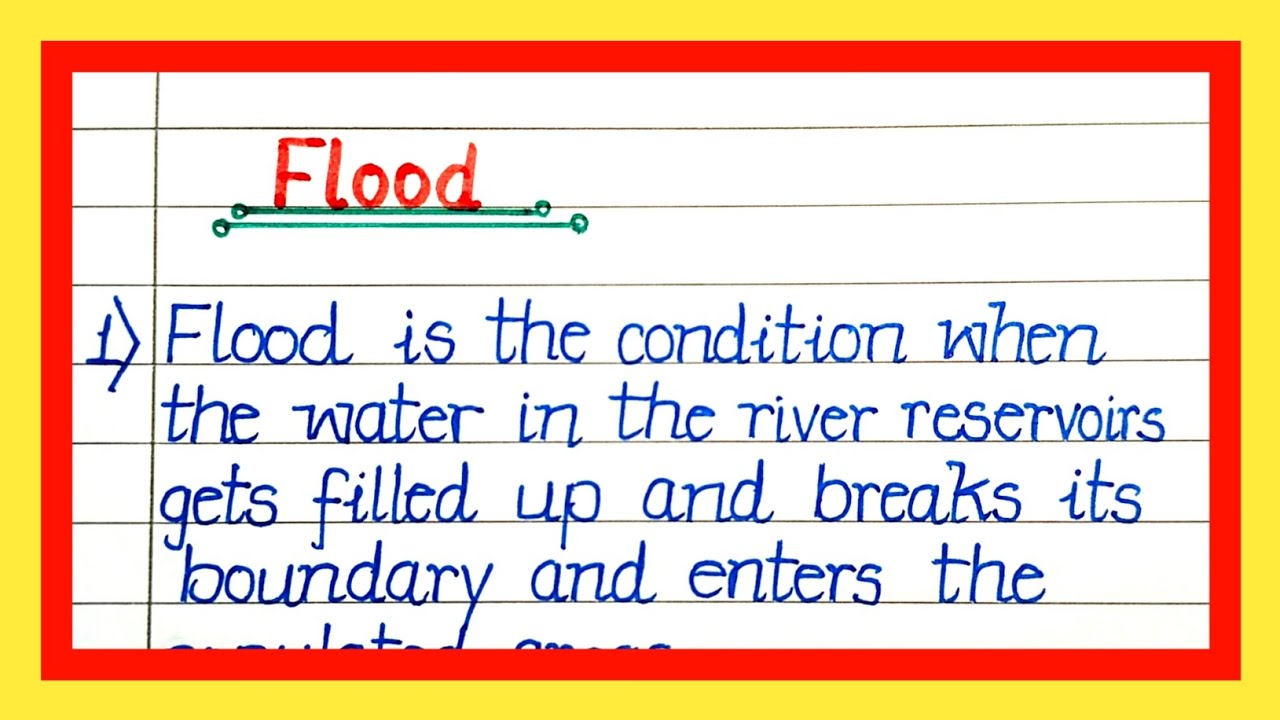 Flood
1) Flood is the condition when
the water in the river reservoirs
gets filled up and breaks its
boundary and enters the